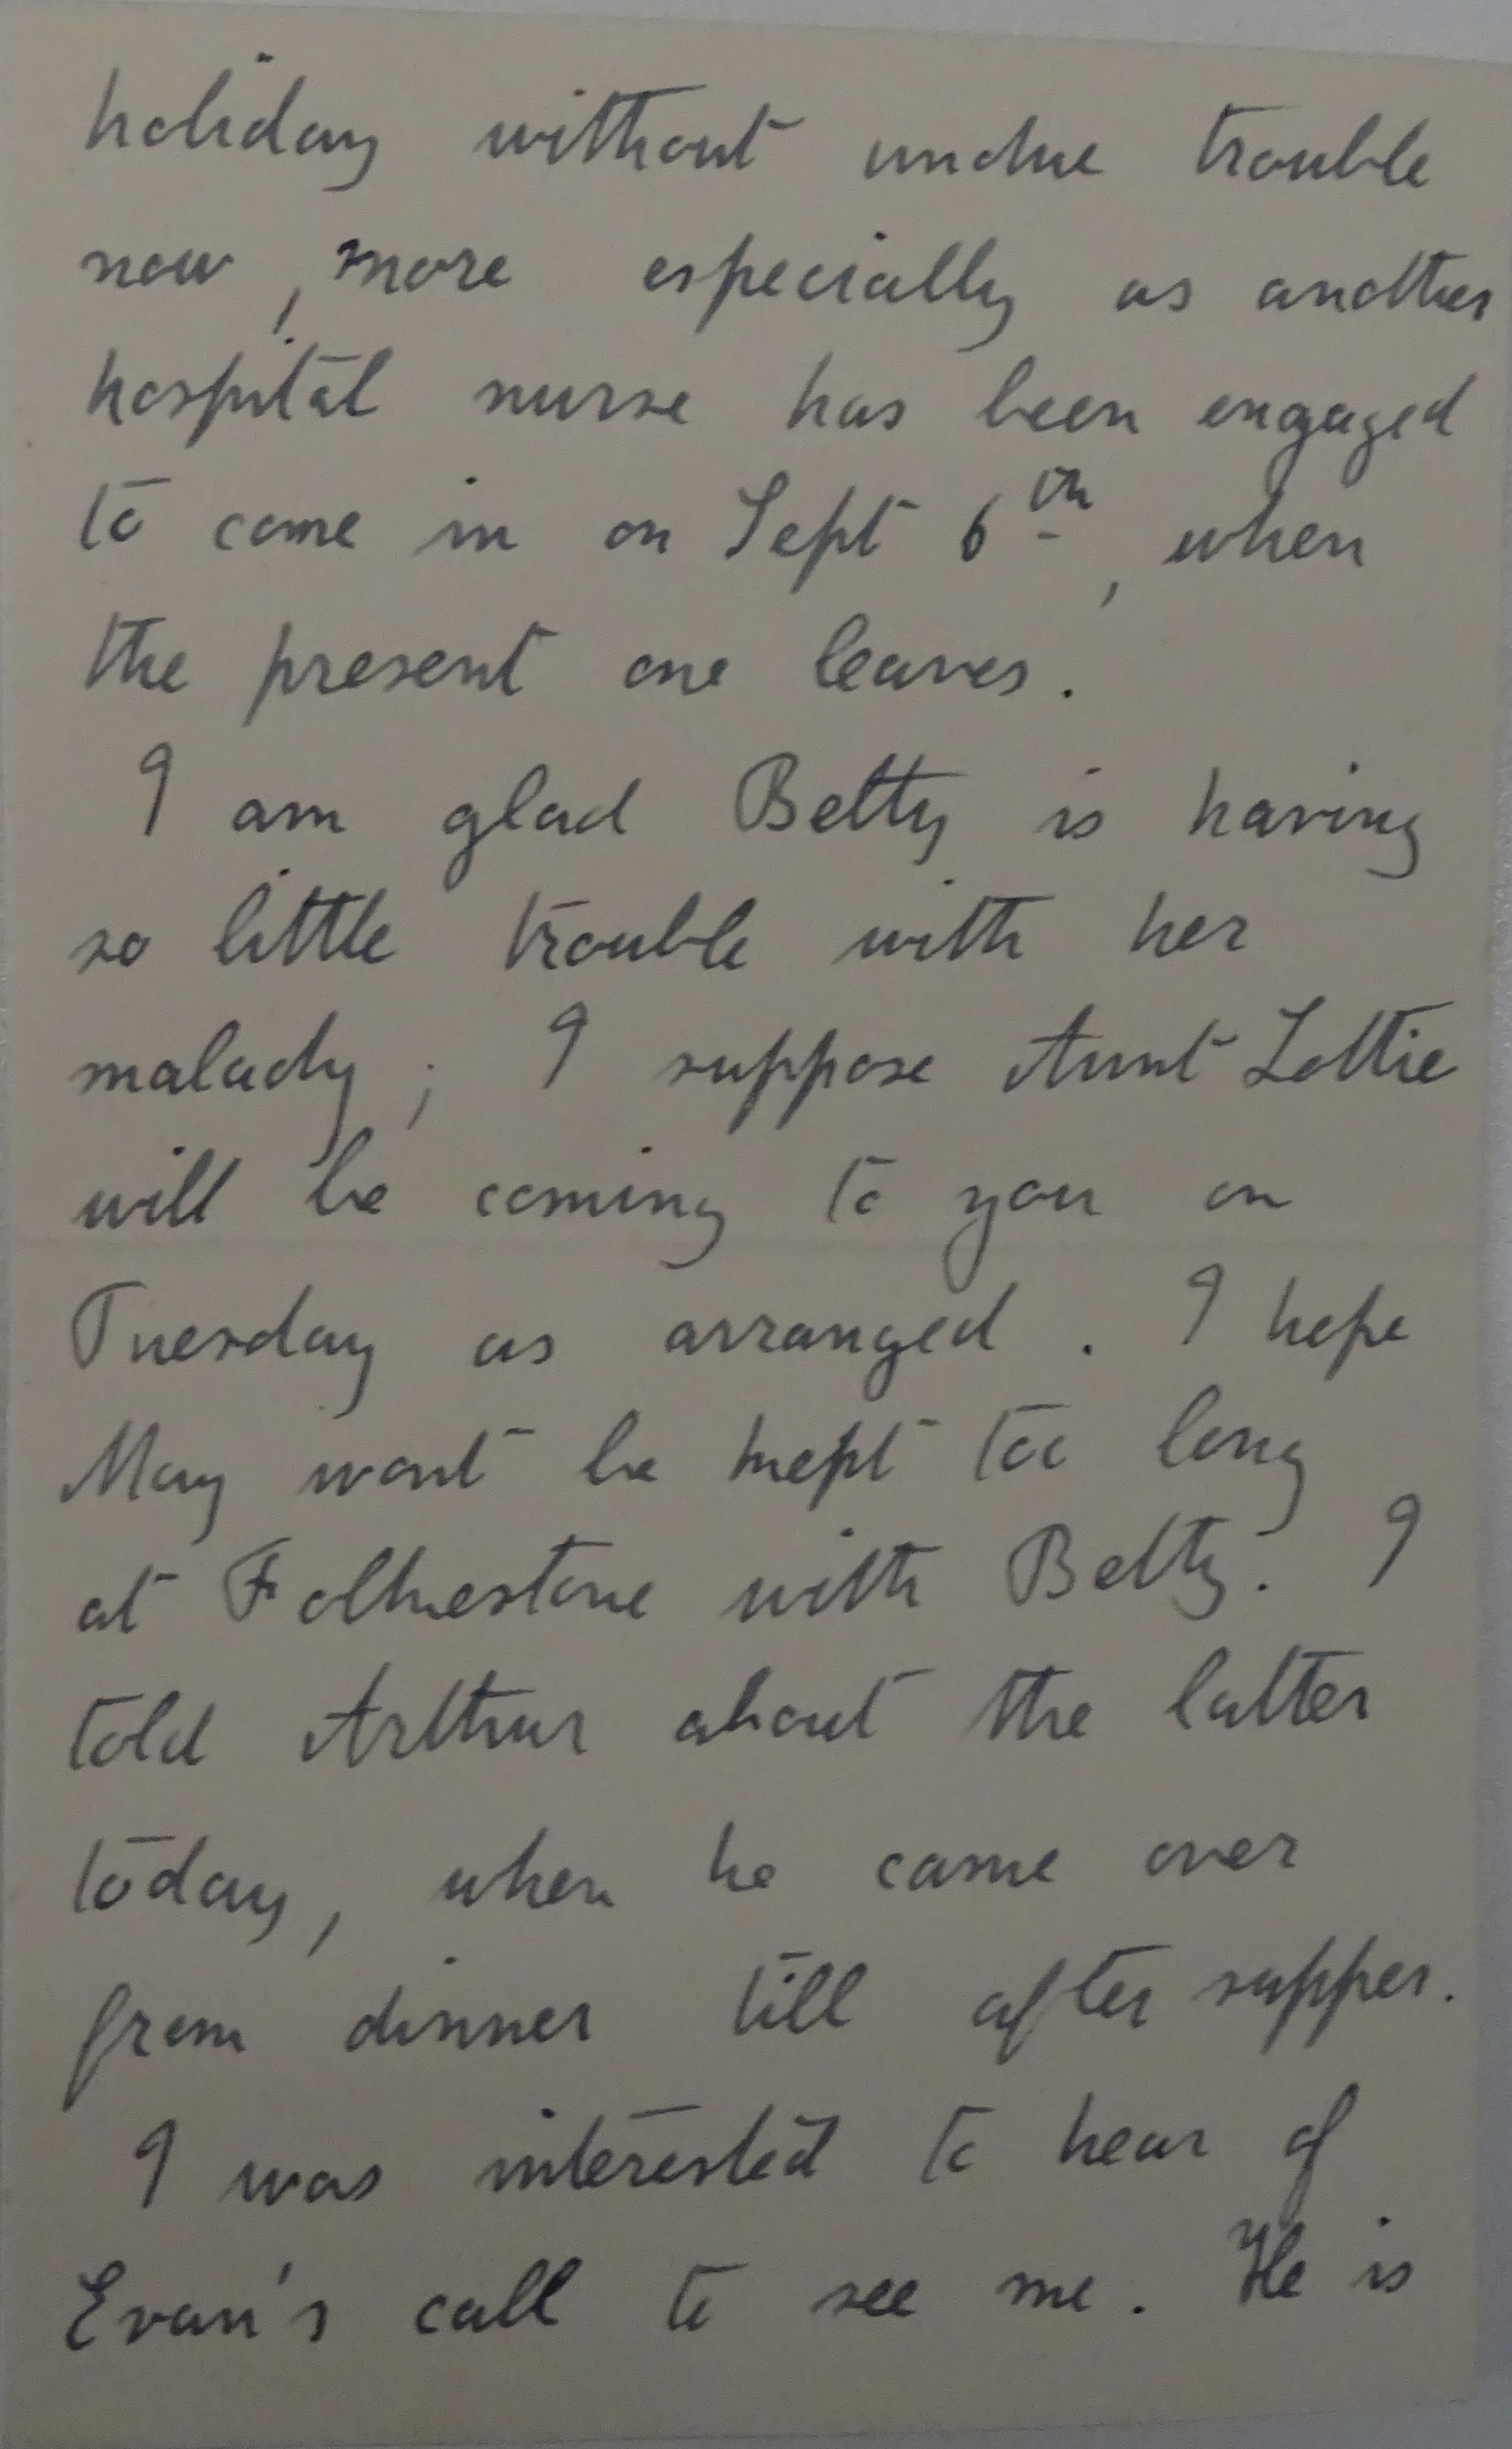 holiday without undue trouble
now, more especially as another
hospital nurse has been engaged
to come in on Sept 6th, when
the present one leaves.
I am glad Betty is having
so little trouble with her
malady; I suppose Aunt Lottie
will be coming to you on
Tuesday as arranged. I hope
May wont be kept too long
at Folkestone with Betty. I
told Arthur about the latter
today, when he came over
from dinner till after supper.
I was interested to hear of
Evan's call to see me. He is